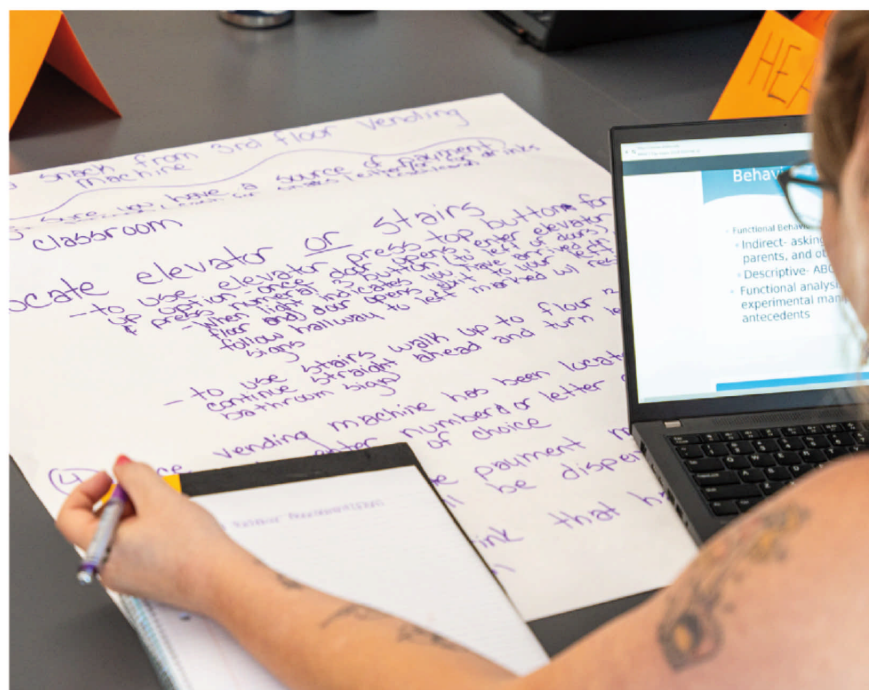 snack from 3rd floor vending
machine
sure you have a source of payment
classroom
ocate elevator or stairs
- to use elevator press top button for
up option - once door opens enter elevator
& press numeral 3 button to left of doors
- when light indicates you have arrived
floor and door opens walk to your left
follow hallway to left marked w/ res
signs
- to use stairs walk up to floor
continue straight ahead and turn le
bathroom sign
④ vending machine has been locate
enter number or letter
of choice
payment
be dispe
ink that h
HEA
Behavi
Functional Behavi
Indirect- asking
parents, and ob
Descriptive- ABC
Functional analysi
experimental mani
antecedents